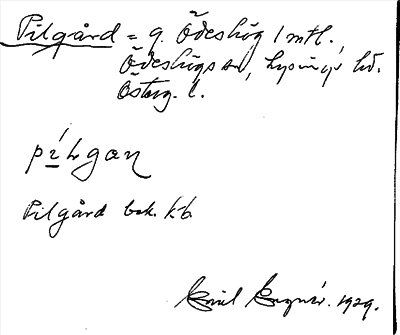 Pilgård = g. Ödeshög 1 mtl.,
Ödeshögs sn, Lysings hd.
Österg. l.
pílgaṇ
Pilgård bek. kb.
1929.